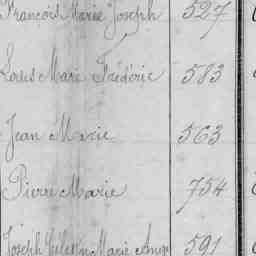 François Marie Joseph 527
Louis Marie Frédéric 583
Jean Marie 563
Pierre Marie 754
Joseph Marie Ange 591